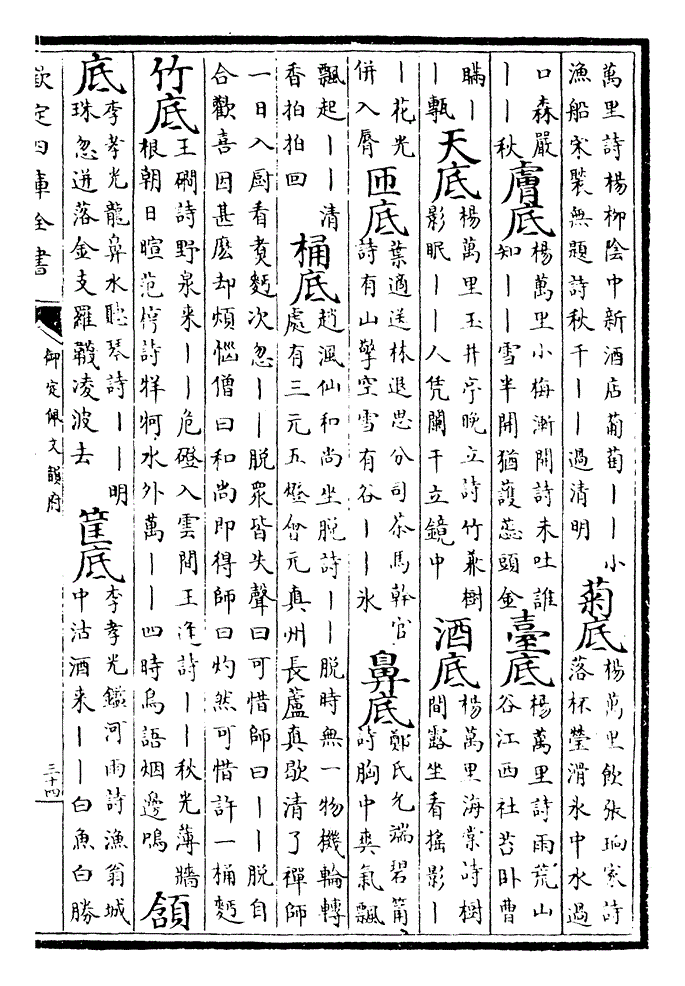 萬里詩楊柳陰中新酒店葡萄｜｜小漁船宋褧無題詩秋千｜｜過清明 菊底 楊萬里飲張珦家詩落杯瑩滑氷中水過
口森嚴｜｜秋 膚底 楊萬里小梅漸開詩未吐誰知｜｜雪半開猶護蕊頭金 臺底 楊萬里詩雨荒山谷江西社苔卧曹
瞞｜｜甎 天底 楊萬里玉井亭晚立詩竹兼樹影眠｜｜人凭闌干立鏡中 酒底 楊萬里海棠詩樹間露坐看搖影｜
｜花光倂入脣 匜底 葉適送林退思分司茶馬幹官詩有山擎空雪有谷｜｜氷 鼻底 鄭氏允端碧筩詩胸中爽氣飄
飄起｜｜清香拍拍回 桶底 趙風仙和尚坐脫詩｜｜脫時無一物機輪轉處有三元五燈會元真州長蘆真歇清了禪師
一日入厨看煑麪次忽｜｜脫衆皆失聲曰可惜師曰｜｜脫自合歡喜因甚麽却煩惱僧曰和尚即得師曰灼然可惜許一桶麪
竹底 王磵詩野泉来｜｜危磴入雲間王逢詩｜｜秋光薄牆根朝日暄范梈詩牂牁水外萬｜｜四時鳥語烟邊鳴 頷
底 李孝光龍鼻水聽琴詩｜｜明珠忽迸落金支羅韈凌波去 筐底 李孝光鑑河雨詩漁翁城中沽酒来｜｜白魚白勝
欽定四庫全書 御定佩文韻府 三十四